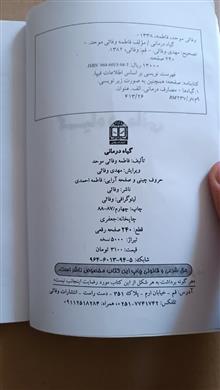 وفائی موحد، فاطمه، ۱۳۳۸ـ
گیاه درمانی / مؤلف فاطمه وفائی موحد.
تصحیح: مهدی وفائی. - قم: وفایی، ۱۳۸۲.
۲۴۰ صفحه
۱۳۰۰۰ ریال
فهرست نویسی بر اساس اطلاعات فیپا.
کتابنامه: صفحه؛ همچنین به صورت زیرنویس.
۱. گیاه‌ها - مصارف درمانی. الف. عنوان.
۶۱۳/۲۶
گیاه درمانی
تألیف: فاطمه وفائی موحد
ویرایش: مهدی وفائی
حروف چینی و صفحه آرایی: فاطمه احمدی
ناشر: وفائی
لیتوگرافی: وفائی
چاپ: چهارم/۸۷-۸۸
چاپخانه: جعفری
قطع: ۲۴۰ صفحه رقعی
تیراژ: ۵۰۰۰ نسخه
قیمت: ۳۱۰۰ تومان
شابک: ۵-۹۴-۶۰۱۳-۹۶۴
حق شرعی و قانونی چاپ این کتاب مخصوص ناشر است.
هر گونه برداشت به هر شکل از این کتاب مورد رضایت اینجانب نیست:
آدرس: قم - خیابان ارم - پلاک ۳۵۱ - دست راست - انتشارات وفائی
تلفن: ۷۷۴۱۷۴۲-۰۲۵۱ - همراه ۰۹۱۱۲۵۱۸۲۸۴